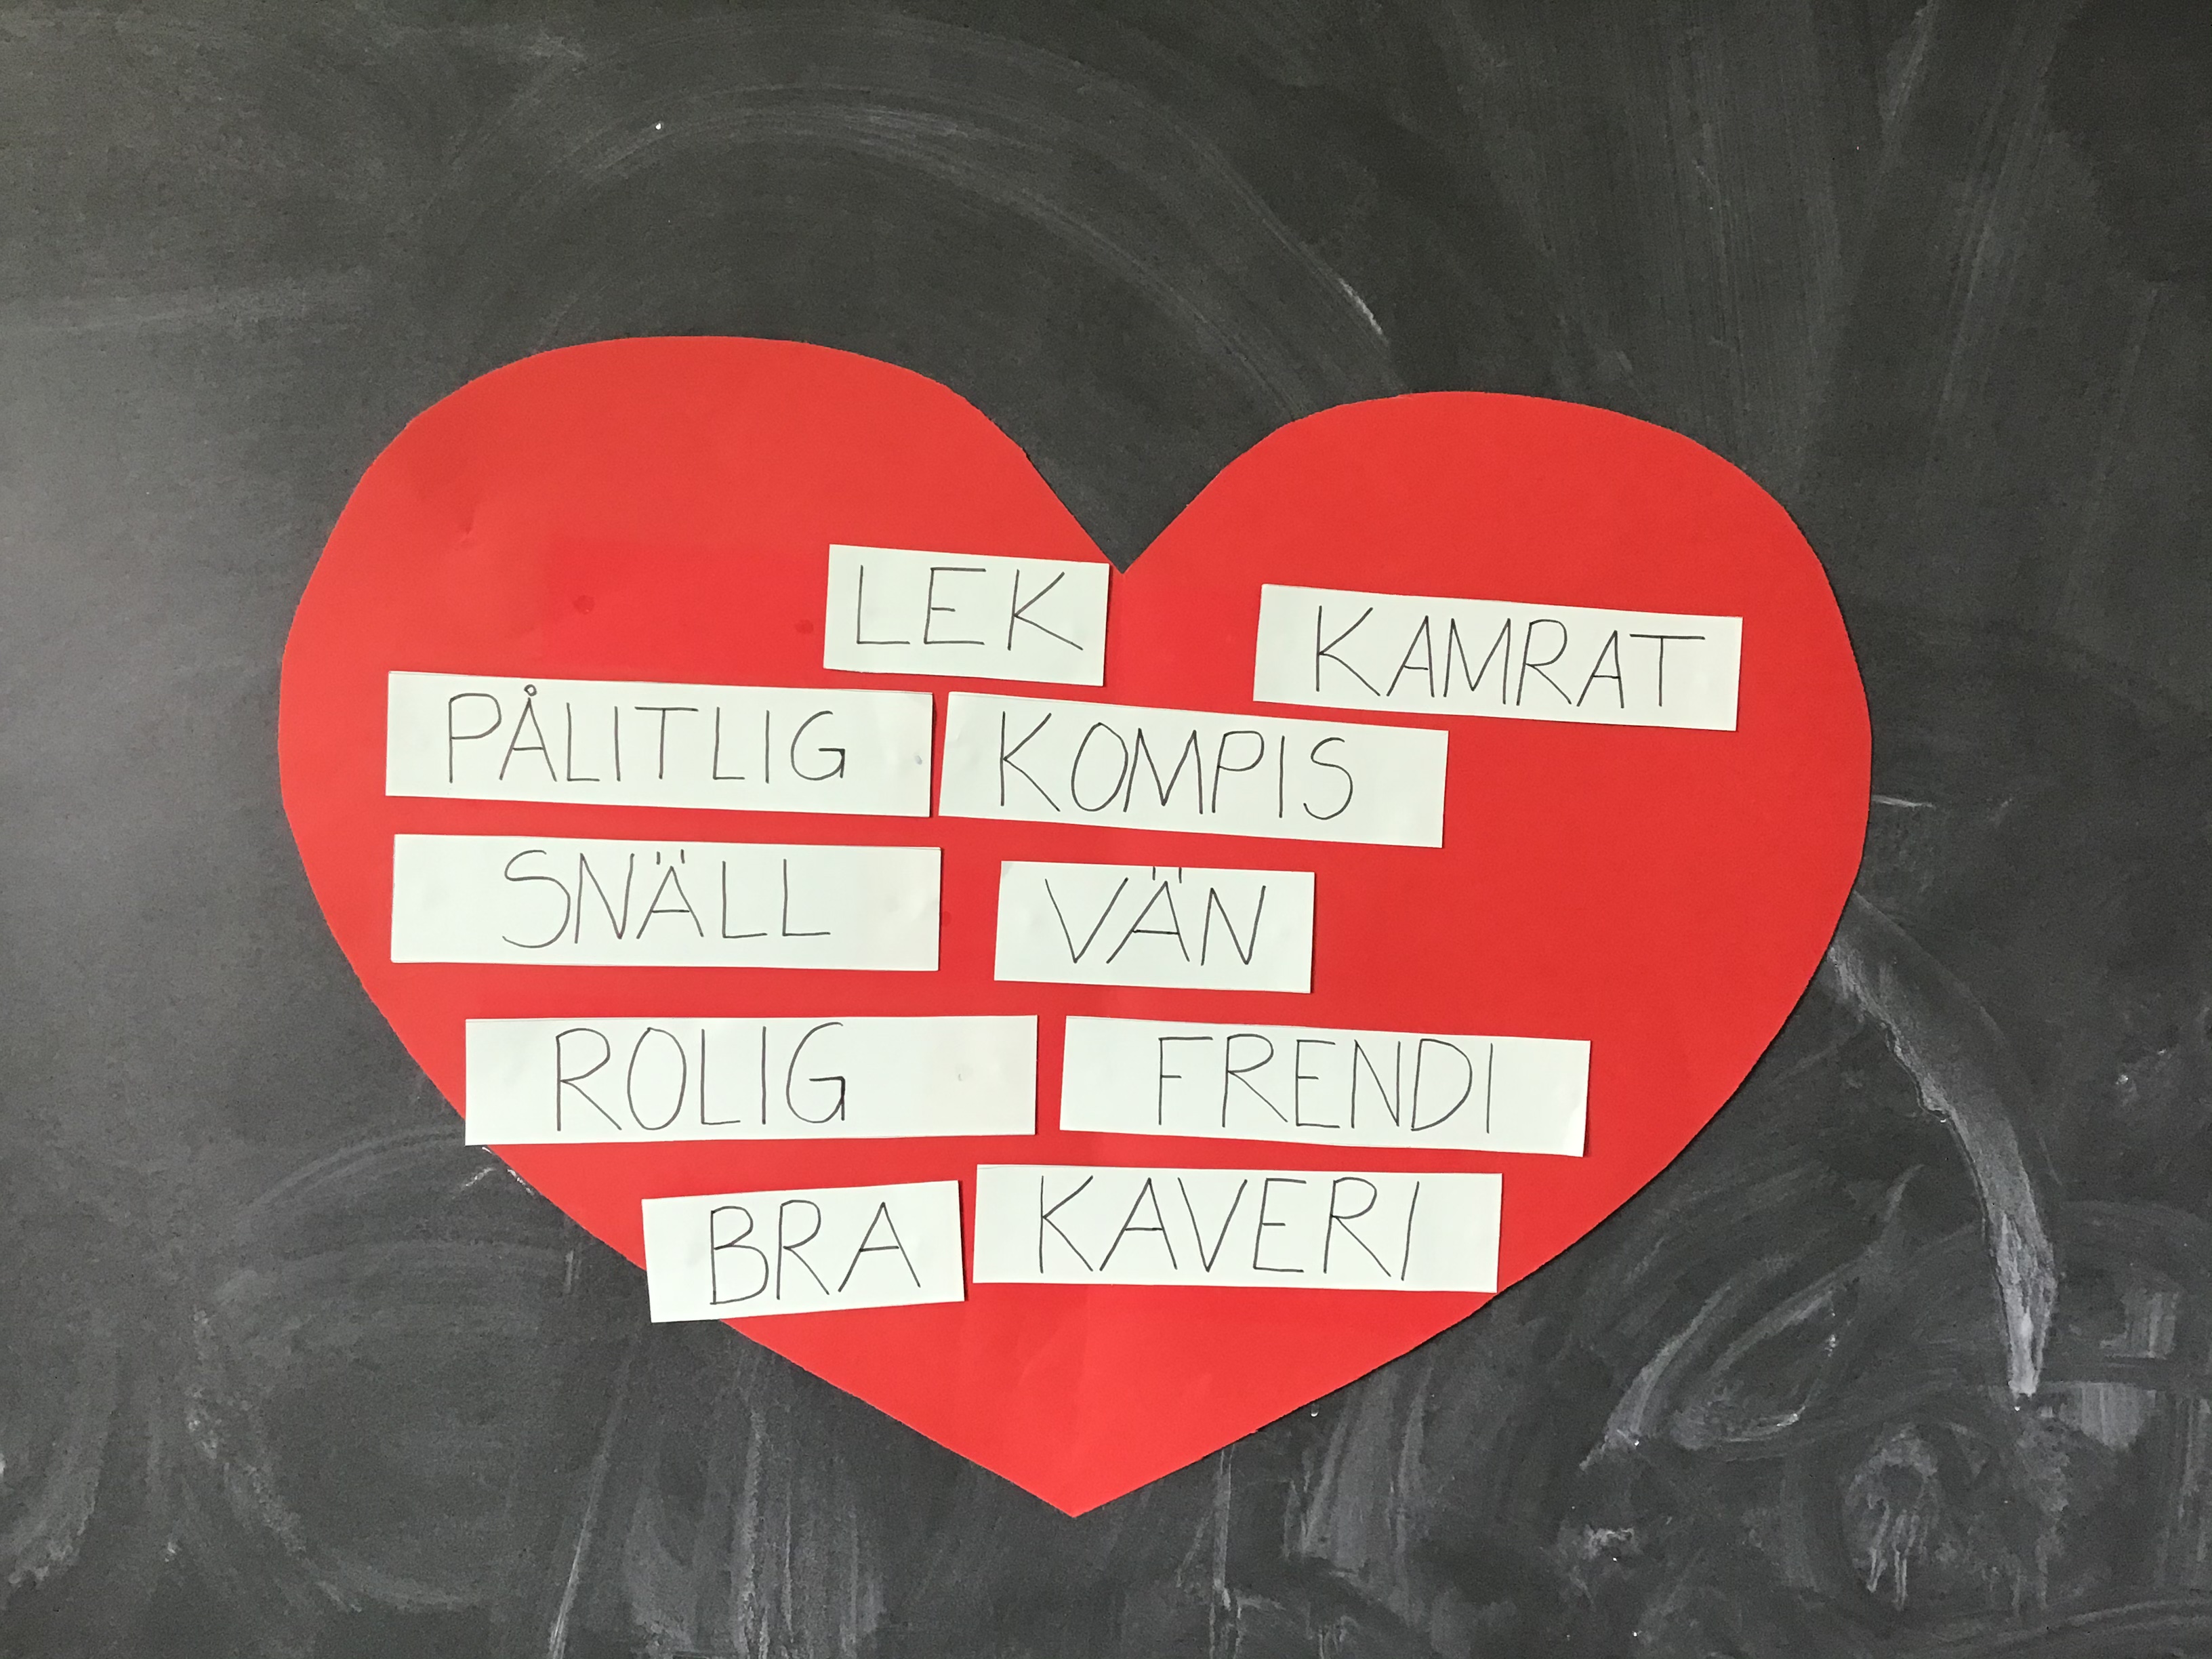 LEK
KAMRAT
PÅLITLIG
KOMPIS
SNÄLL
VÄN
ROLIG
FRENDI
BRA
KAVERI